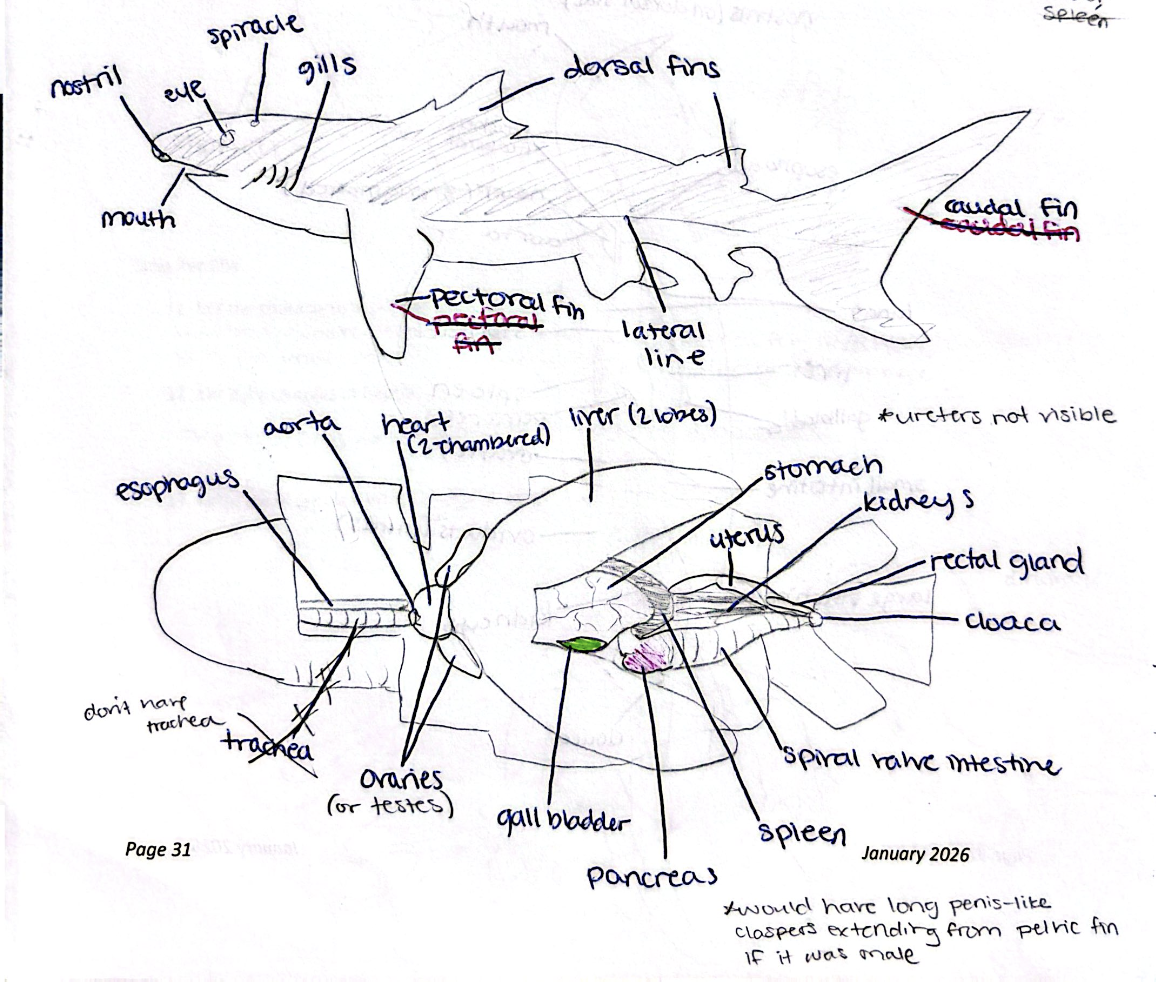 spleen
spiracle
nostril
eye
gills
dorsal fins
mouth
caudal fin
caudal fin
pectoral fin
pectoral
fin
lateral
line
aorta
heart
(2-chambered)
liver (2 lobes)
*ureters not visible
esophagus
stomach
kidneys
uterus
rectal gland
cloaca
don't have
trachea
trachea
ovaries
(or testes)
gall bladder
spiral valve intestine
spleen
pancreas
Page 31
January 2026
*would have long penis-like
claspers extending from pelvic fin
if it was male